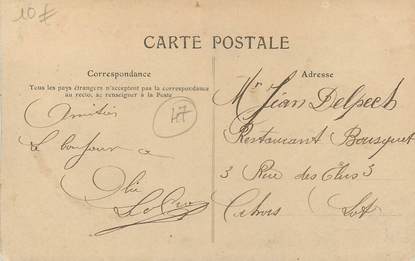 10 €
CARTE POSTALE
Correspondance
Tous les pays étrangers n'acceptent pas la correspondance
au recto, se renseigner à la Poste
Amitiés
& bonjour a
47
Adresse
Mr Jean Delpech
Restaurant Bousquet
3 Rue des Elus 3
Cahors Lot